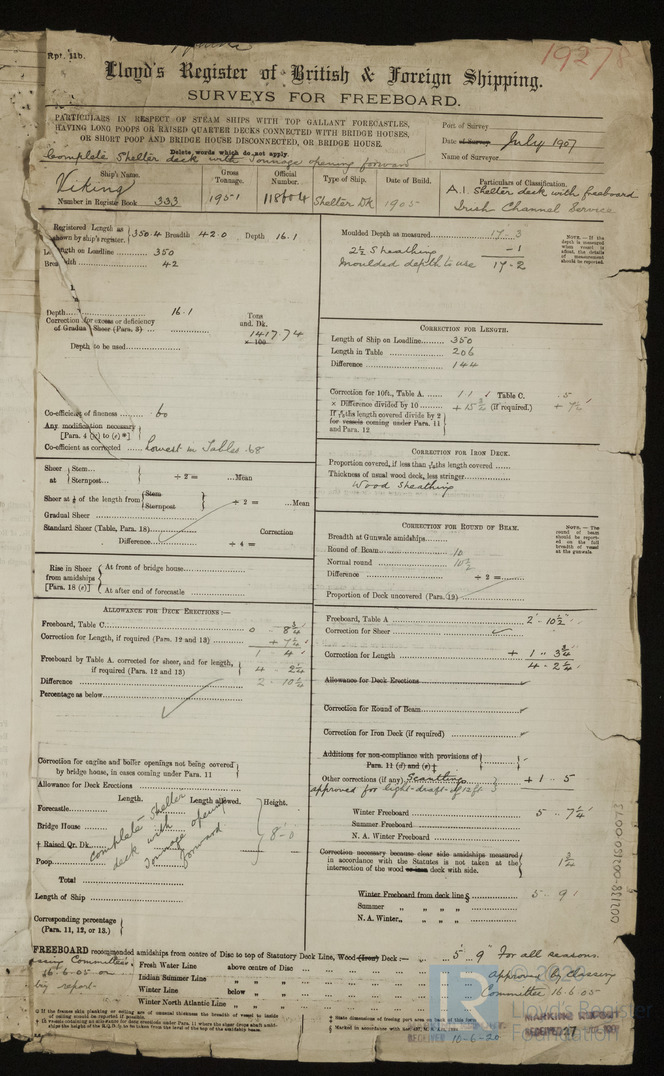 Rpt. 11b.
1927
Lloyd's Register of British & Foreign Shipping.
SURVEYS FOR FREEBOARD.
PARTICULARS IN RESPECT OF STEAM SHIPS WITH TOP GALLANT FORECASTLES,
HAVING LONG POOPS OR RAISED QUARTER DECKS CONNECTED WITH BRIDGE HOUSES,
OR SHORT POOP AND BRIDGE HOUSE DISCONNECTED, OR BRIDGE HOUSE.
Delete words which do not apply.
Complete Shelter deck with Tonnage opening forward
Port of Survey
Date of Survey July 1907
Name of Surveyor
Ship's Name. Gross Tonnage. Official Number. Type of Ship. Date of Build. Particulars of Classification.
Viking 1951 118604 Shelter Dk 1905 A.1. Shelter deck with freeboard
Number in Register Book 333 Irish Channel Service
Registered Length as shown by ship's register. 350.4 Breadth 42.0 Depth 16.1
Length on Loadline 350
Breadth 42
Depth 16.1
Correction for excess or deficiency of Gradual Sheer (Para. 3)
Tons und. Dk. 1417.74
x 100
Depth to be used
Co-efficient of fineness 60
Any modification necessary
[Para. 4 to (e)*]
Co-efficient as corrected Lowest in Tables .68
Sheer at Stem
Sternpost ÷ 2 = Mean
Sheer at 1/8 of the length from Stem
Sternpost ÷ 2 = Mean
Gradual Sheer
Standard Sheer (Table, Para. 18) Correction
Difference ÷ 4 =
Rise in Sheer from amidships [Para. 18 (e)]
At front of bridge house
At after end of forecastle
ALLOWANCE FOR DECK ERECTIONS :—
Freeboard, Table C 0 - 8 3/4
Correction for Length, if required (Para. 12 and 13) + 7 1/4
1 4
Freeboard by Table A. corrected for sheer, and for length, if required (Para. 12 and 13) 4 - 2 1/4
Difference 2 - 10 1/4
Percentage as below
Correction for engine and boiler openings not being covered by bridge house, in cases coming under Para. 11
Allowance for Deck Erections
Length. Length allowed. Height.
Forecastle
Bridge House
† Raised Qr. Dk.
Poop
Complete Shelter deck with Tonnage opening forward
8'-0
Total
Length of Ship
Corresponding percentage (Para. 11, 12, or 13.)
Moulded Depth as measured 17 - 3
2 1/2 Sheathing - 1
Moulded depth to use 17-2
NOTE.—If the depth is measured when vessel is afloat, the details of measurement should be reported.
CORRECTION FOR LENGTH.
Length of Ship on Loadline 350
Length in Table 206
Difference 144
Correction for 10ft., Table A. 1.1 Table C. .5
× Difference divided by 10 + 15 3/4 (if required.) + 7 1/4
If 6/10ths length covered divide by 2
for vessels coming under Para. 11 and Para. 12
CORRECTION FOR IRON DECK.
Proportion covered, if less than 7/10ths length covered
Thickness of usual wood deck, less stringer
Wood Sheathing
CORRECTION FOR ROUND OF BEAM.
Breadth at Gunwale amidships
Round of Beam 10
Normal round 10 1/2
Difference ÷ 2 =
Proportion of Deck uncovered (Para. 19)
NOTE.—The round of beam should be reported on the full breadth of vessel at the gunwale
Freeboard, Table A 2' - 10 1/2"
Correction for Sheer
Correction for Length + 1 .. 3 3/4
4 - 2 1/4
Allowance for Deck Erections
Correction for Round of Beam
Correction for Iron Deck (if required)
Additions for non-compliance with provisions of Para. 11 (d) and (e) †
Other corrections (if any) Scantlings + 1 .. 5
approved for light draft of 12 ft
Winter Freeboard 5 .. 7 1/4
Summer Freeboard
N. A. Winter Freeboard
Correction necessary because clear side amidships measured in accordance with the Statutes is not taken at the intersection of the wood or iron deck with side. 1 3/4
Winter Freeboard from deck line § 5 - 9
Summer „ „ „ „
N. A. Winter „ „ „ „
FREEBOARD recommended amidships from centre of Disc to top of Statutory Deck Line, Wood (Iron) Deck :— 5 9" For all seasons.
Fresh Water Line above centre of Disc
Indian Summer Line „ „
Winter Line below „
Winter North Atlantic Line „ „
Committee
16.6.05 on
by report.
Approved by Classing
Committee 16.6.05
‡ State dimensions of freeing port area on back of this form
RECEIVED 10-6-20
MARKING REPORT
RECEIVED 27
LR
Foundation